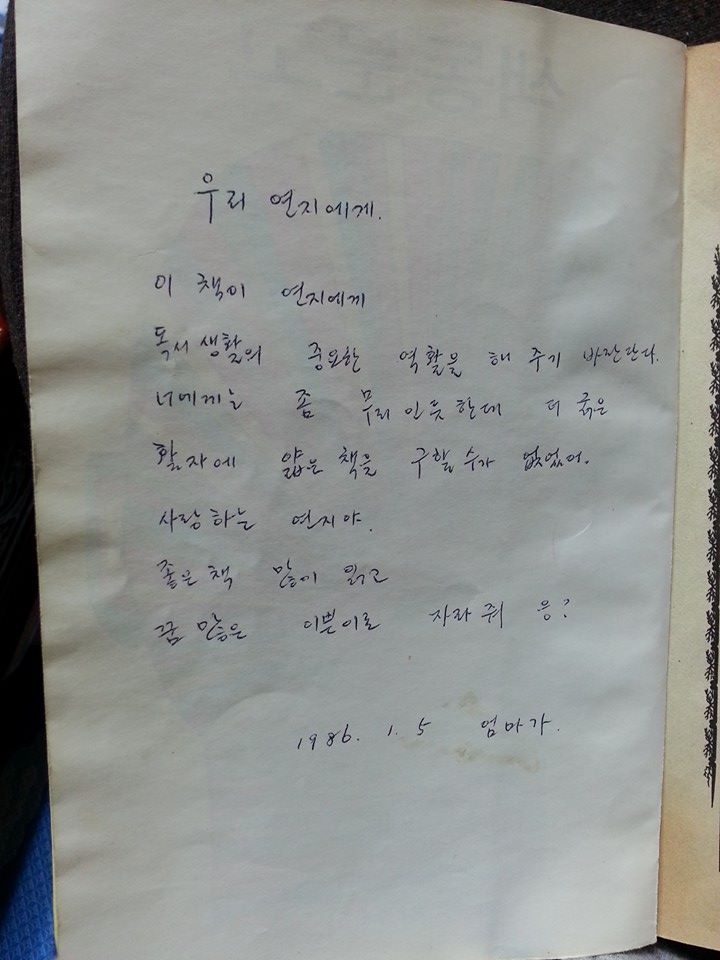 우리 연지에게.
이 책이 연지에게
독서생활의 중요한 역활을 해 주기 바란단다.
너에게는 좀 무리인듯한데 더 굵은
활자에 얇은 책을 구할수가 없었어.
사랑하는 연지야.
좋은책 많이 읽고
꿈많은 이쁜이로 자라줘 응?
1986. 1. 5 엄마가.